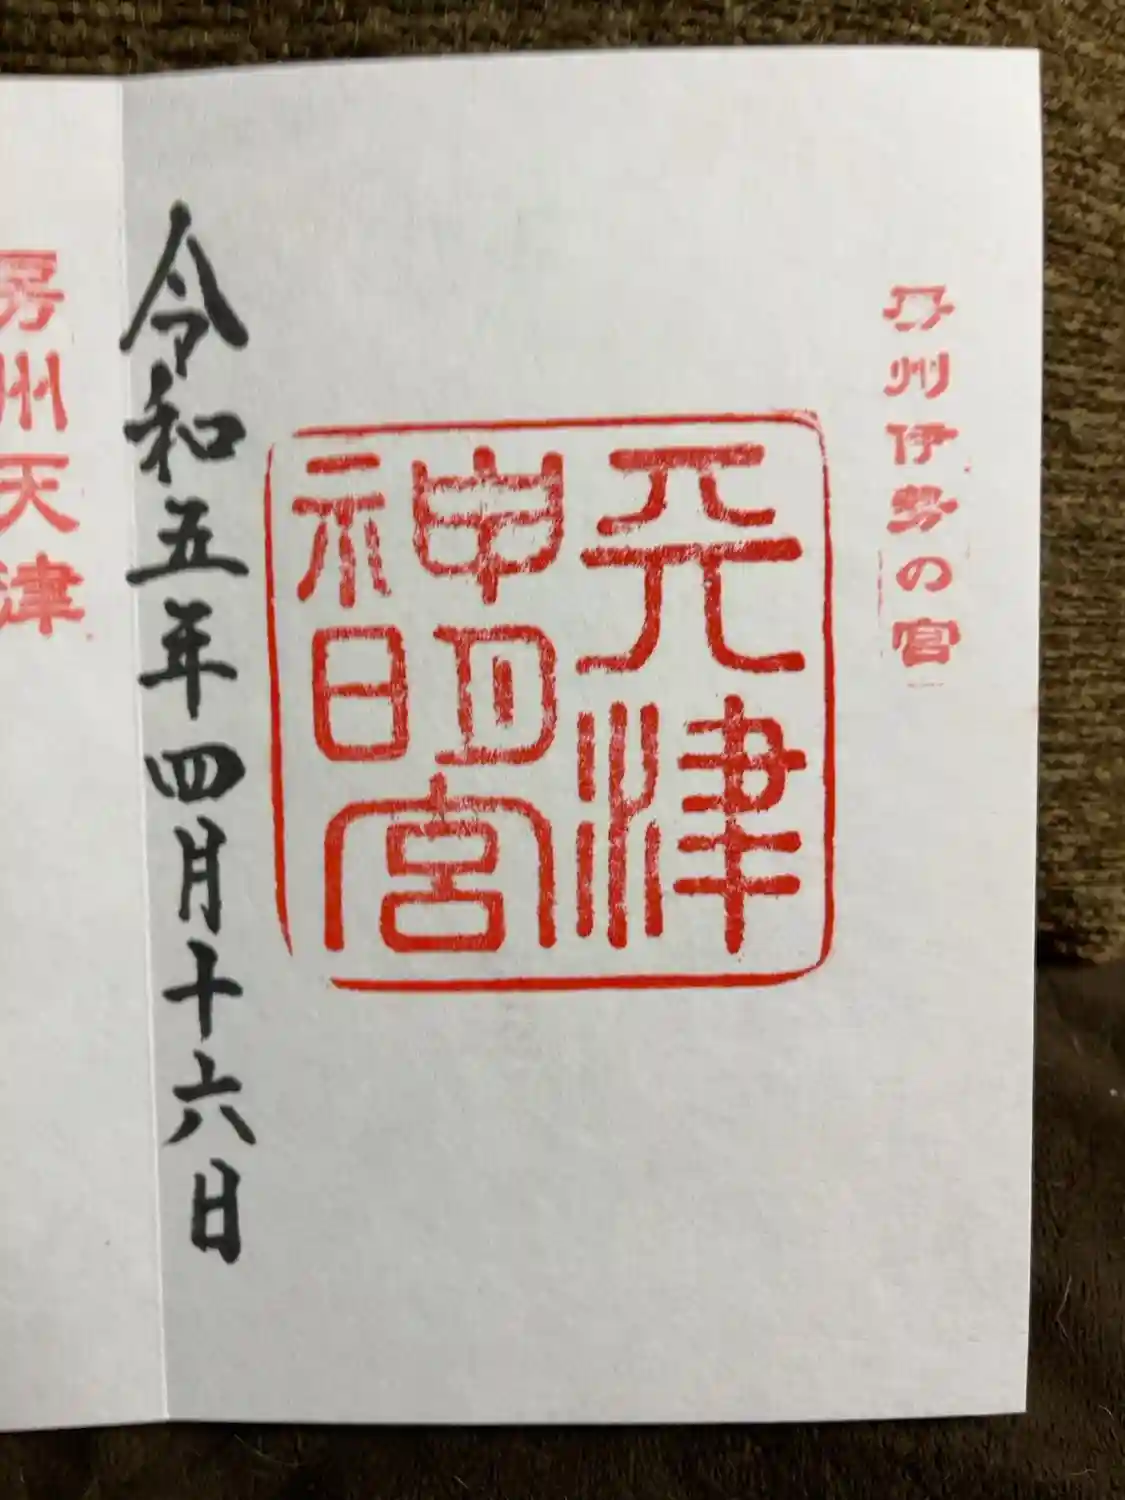 房州伊勢の宮
天津
神明宮
令和五年四月十六日
房州天津